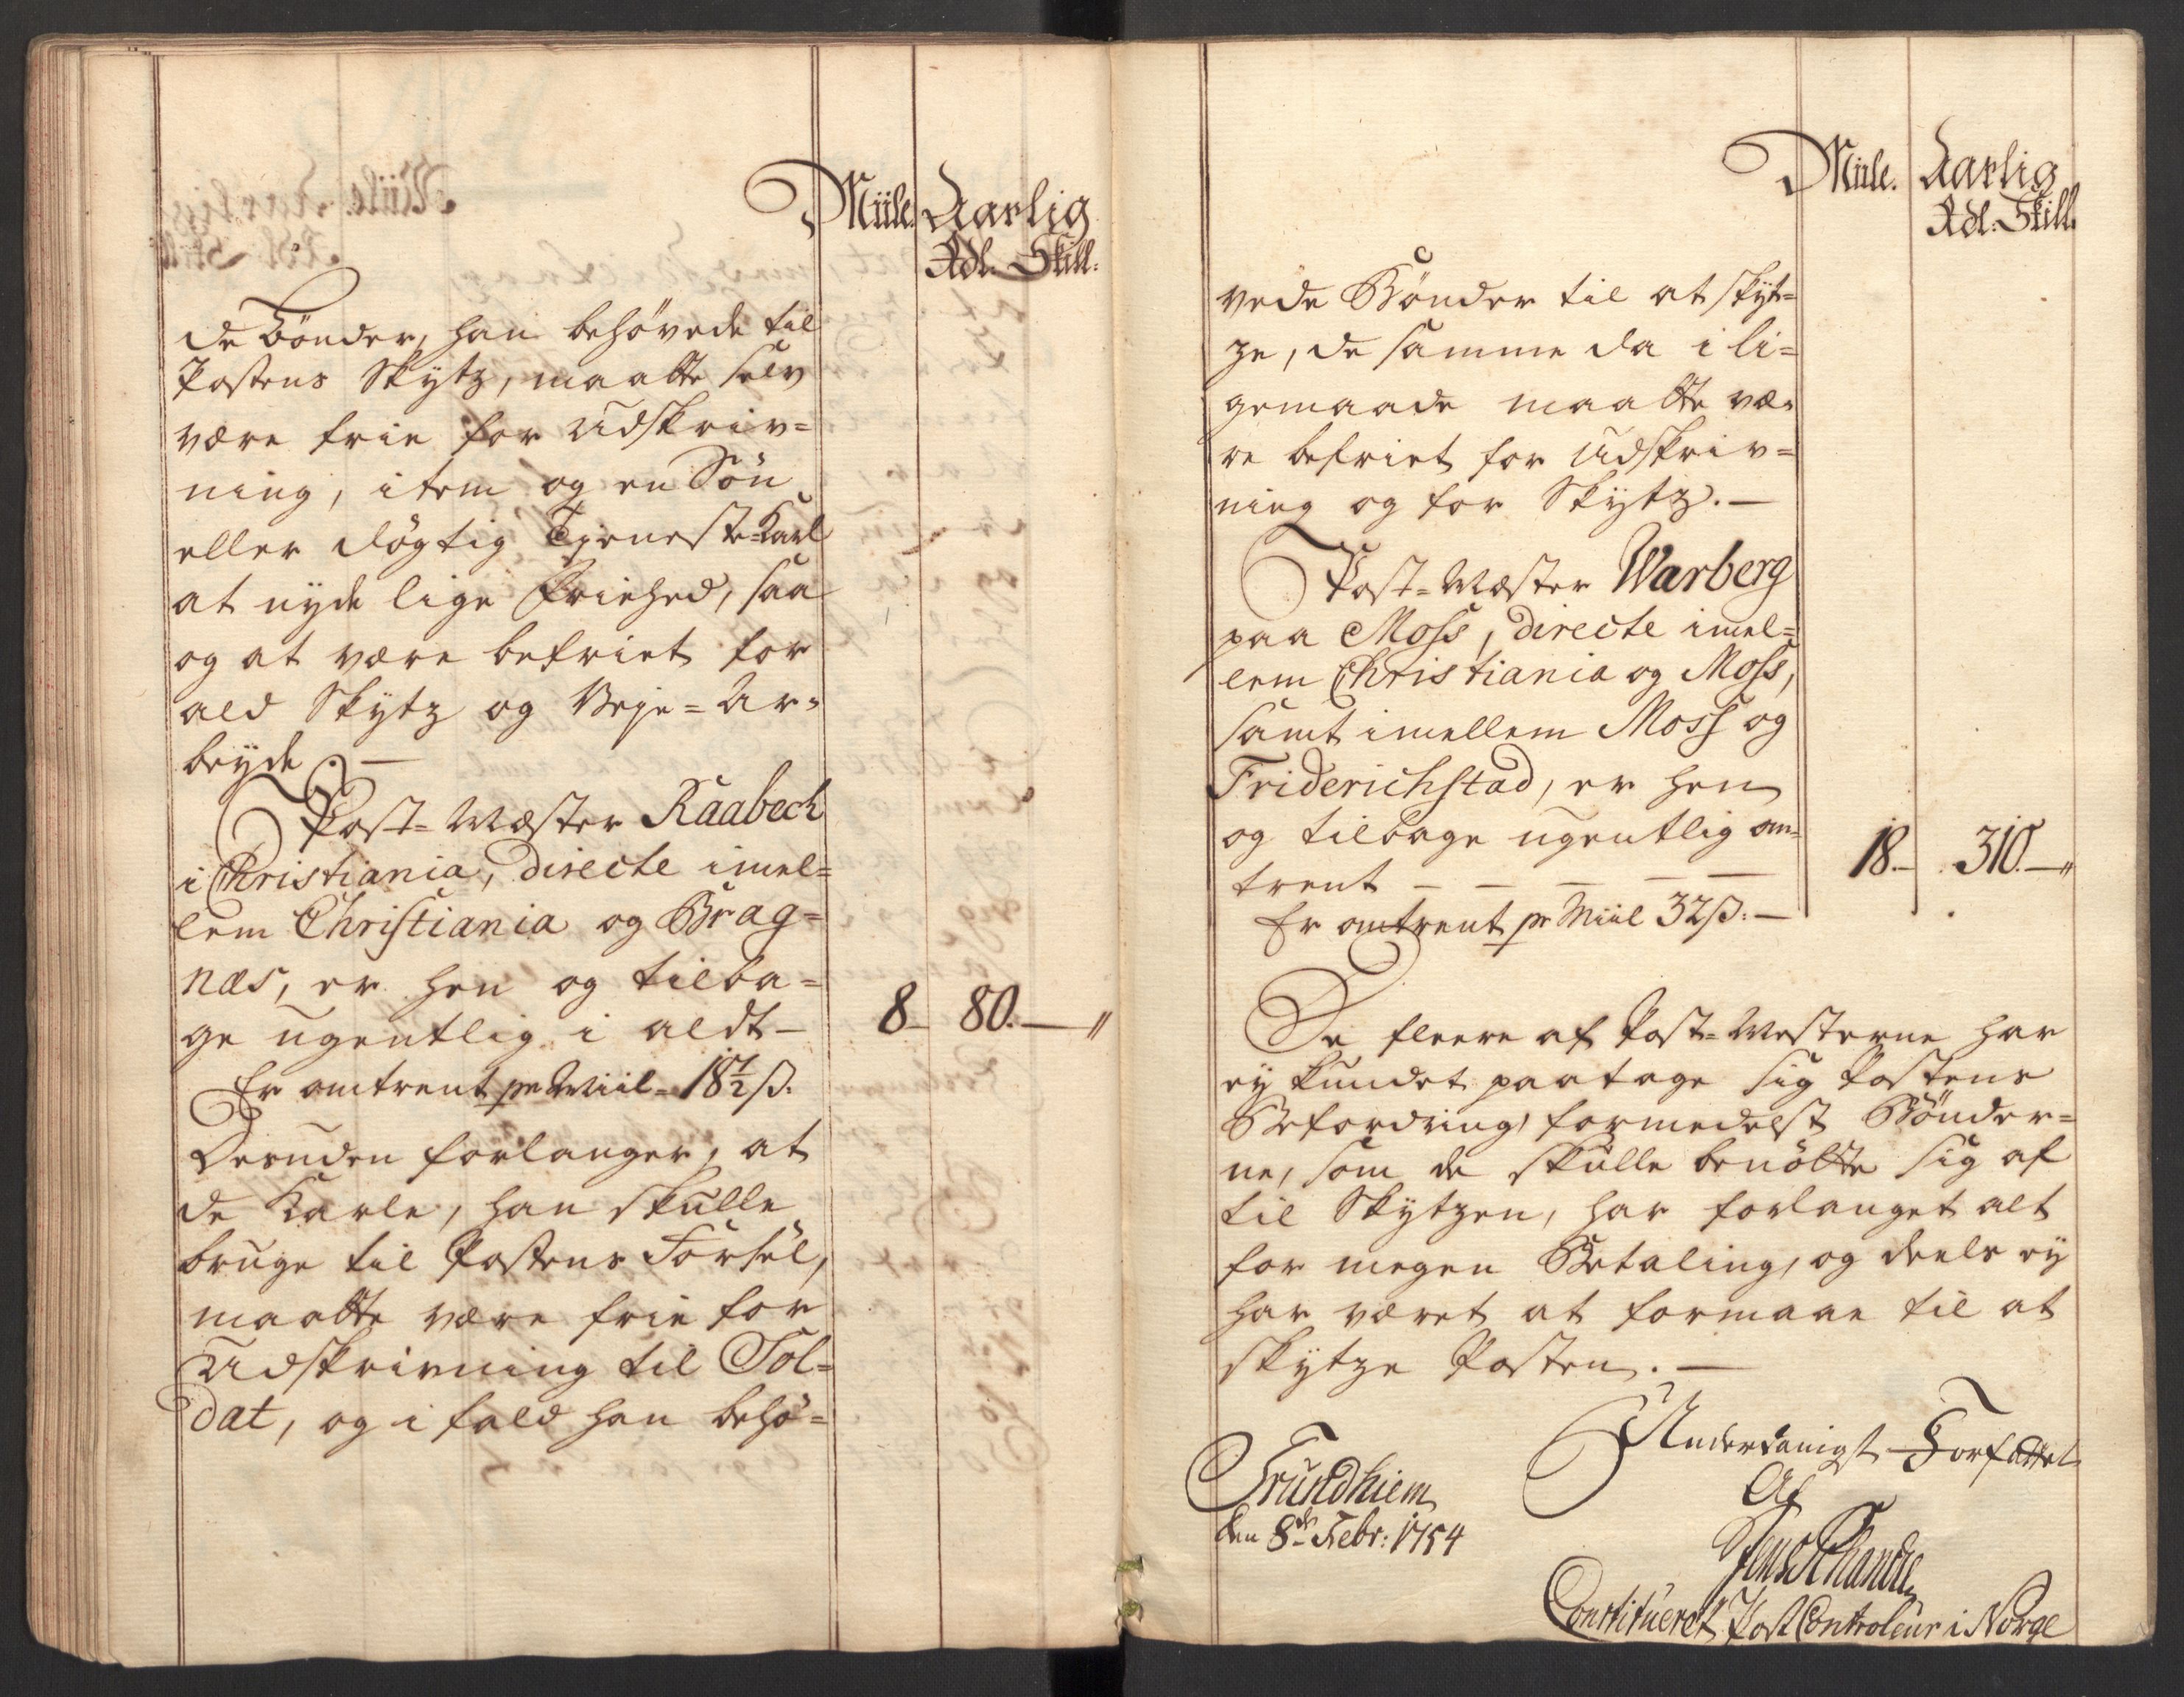 Miile. Aarlig
Rdl. Skill.
de Bönder, han behövede til
Postens Skytz, maatte selv
være frie for Udskriv=
ning, item og en Sön
eller dögtig Tjeneste=Karl
at nyde lige Friehed, saa
og at være befriet for
ald Skytz og Veje=Ar=
beyde. —
Post=Mæster Raabech
i Christiania, directe imel=
lem Christiania og Brag=
næs, er hen og tilba=
ge ugentlig i aldt — 8— 80.— "
Er omtrent pr Miil = 18½ ß.
Desuden forlanger, at
de Karle, han skulle
bruge til Postens Forsel,
maatte være frie for
Udskrivning til Sol=
dat, og i fald han behö=
Miile. Aarlig
Rdl. Skill.
vede Bönder til at skyt=
ze, de samme da i li=
gemaade maatte væ=
re befriet for Udskriv=
ning og for Skytz. —
Post=Mæster Warberg
paa Moss, directe imel=
lem Christiania og Moss,
samt imellem Moss og
Friderichstad, er hen
og tilbage ugentlig om=
trent — — — — — 18.— 310.— "
Er omtrent pr Miil 32 ß. —
De fleere af Post=Mesterne har
ey kundet paatage sig Postens
Befordring, formedelst Bönder=
ne, som de skulle benötte sig af
til Skytzen, har forlanget alt
for megen Betaling, og deels ey
har været at formaae til at
skytze Posten. —
Underdanigst Forfattet
Af
Trundhiem
den 8de Febr: 1754
Jens
Constitueret Post Controleur i Norge